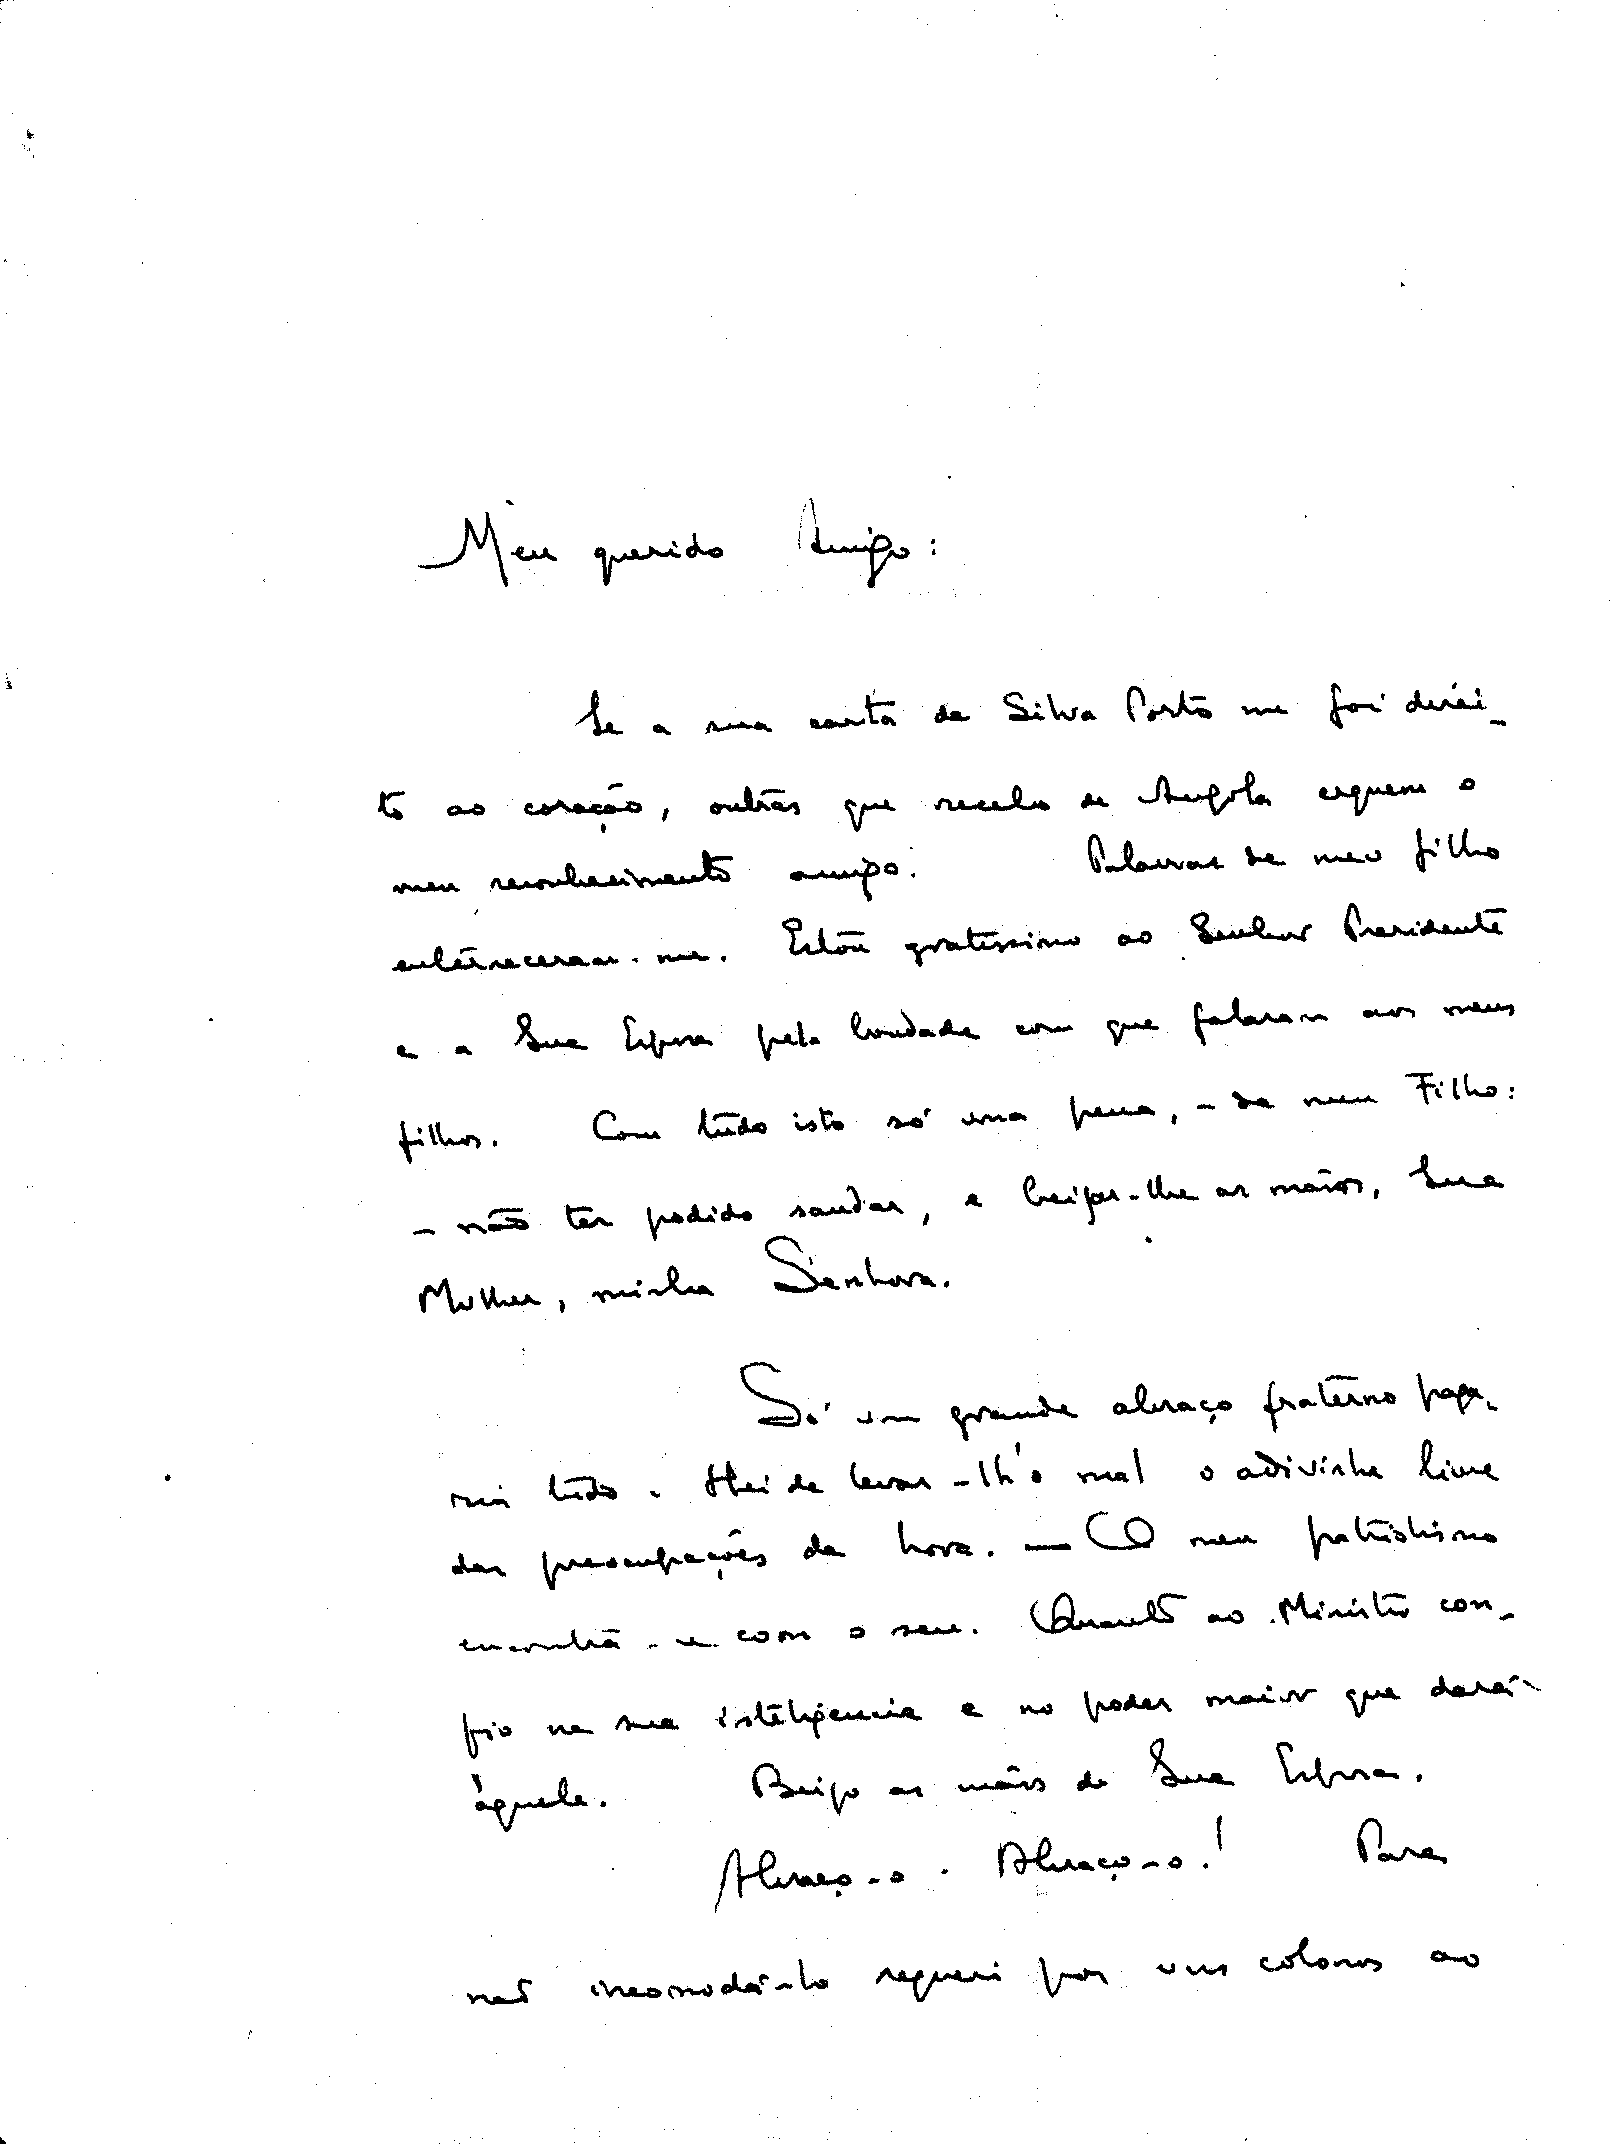 Meu querido Amigo:
Se a sua carta de Silva Porto me foi direi-
to ao coração, outras que recebo de Angola erguem o
meu reconhecimento amigo. Palavras de meu filho
enterneceram-me. Estou gratissimo ao Senhor Presidente
e a Sua Esposa pela bondade com que falaram aos meus
filhos. Com tudo isto só uma pena, - da meu Filho:
- não ter podido saudar, e beijar-lhe as mãos, Sua
Mulher, minha Senhora.
Só um grande abraço fraterno paga-
rá tudo. Hei de levar-lh'o mal o adivinhe livre
das preocupações da hora. — O meu patriotismo
encontra-se com o seu. Quanto ao Ministro con-
fio na sua inteligencia e no poder maior que dará
àquele. Beijo as mãos de Sua Esposa.
Abraço-o. Abraço-o! Para
não incomodá-lo requeri por uns colonos ao